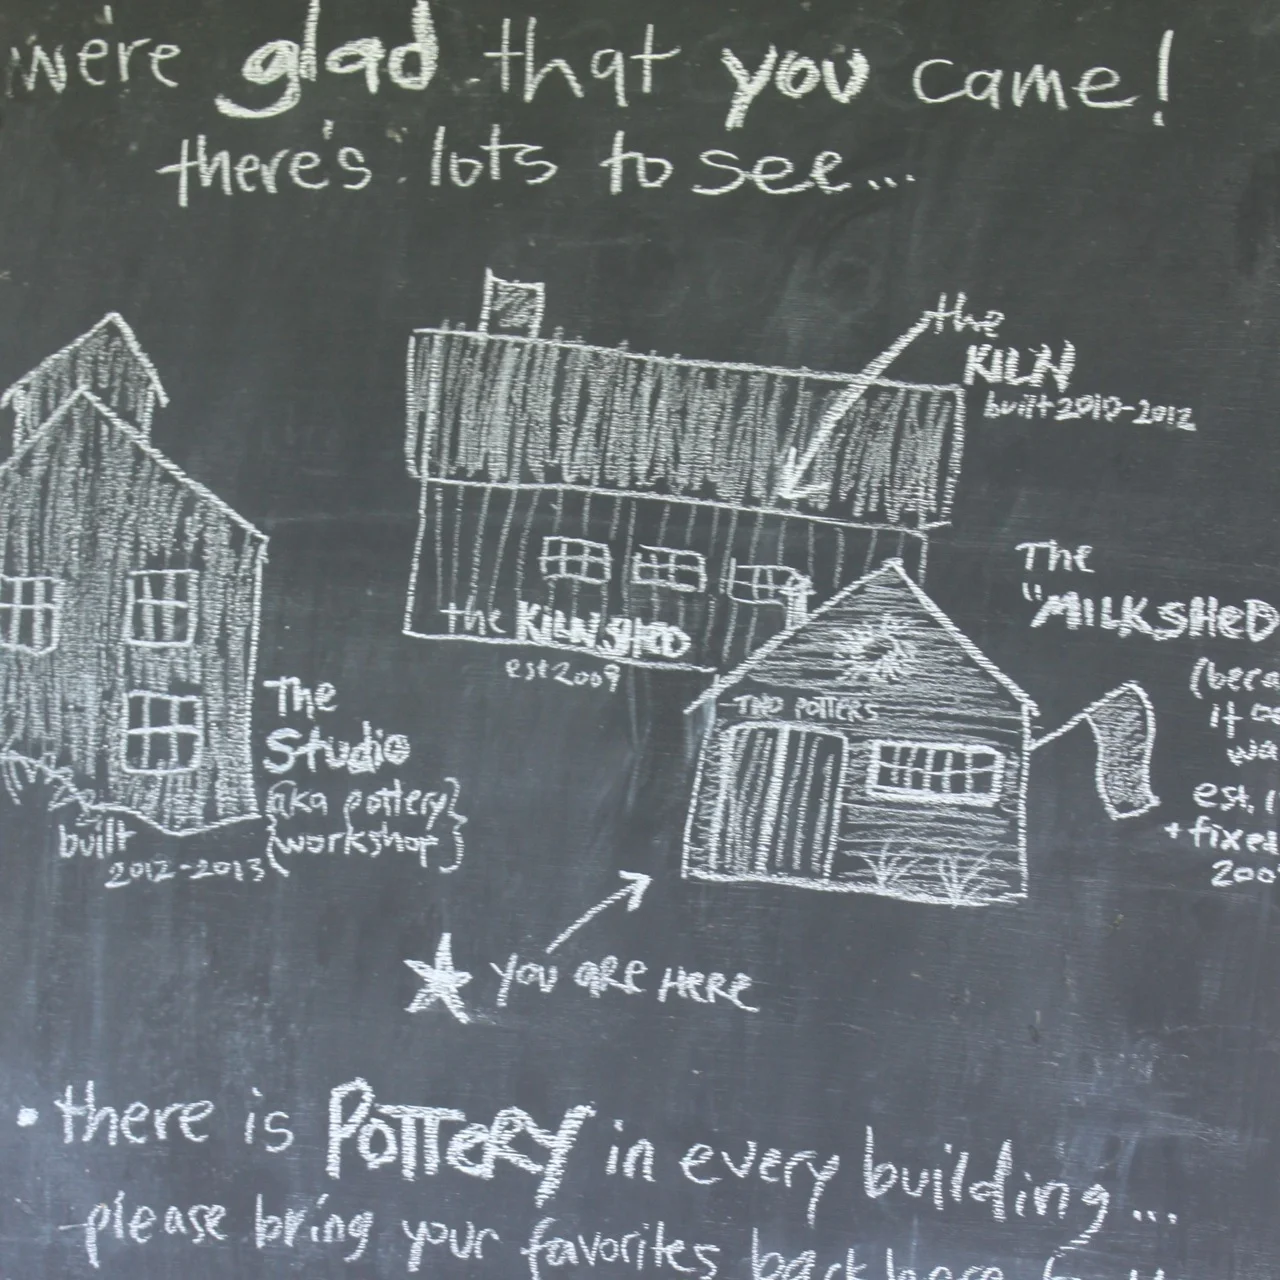 we're glad that you came!
there's lots to see...
the
KILN
built 2010-2012
the KILN SHED
est 2009
The
"MILKSHED
(beca
it
wa
est. 1
+ fixed
200
TWO POTTERS
The
Studio
{aka pottery}
{workshop}
built
2012-2013
YOU ARE HERE
• there is POTTERY in every building...
please bring your favorites back here